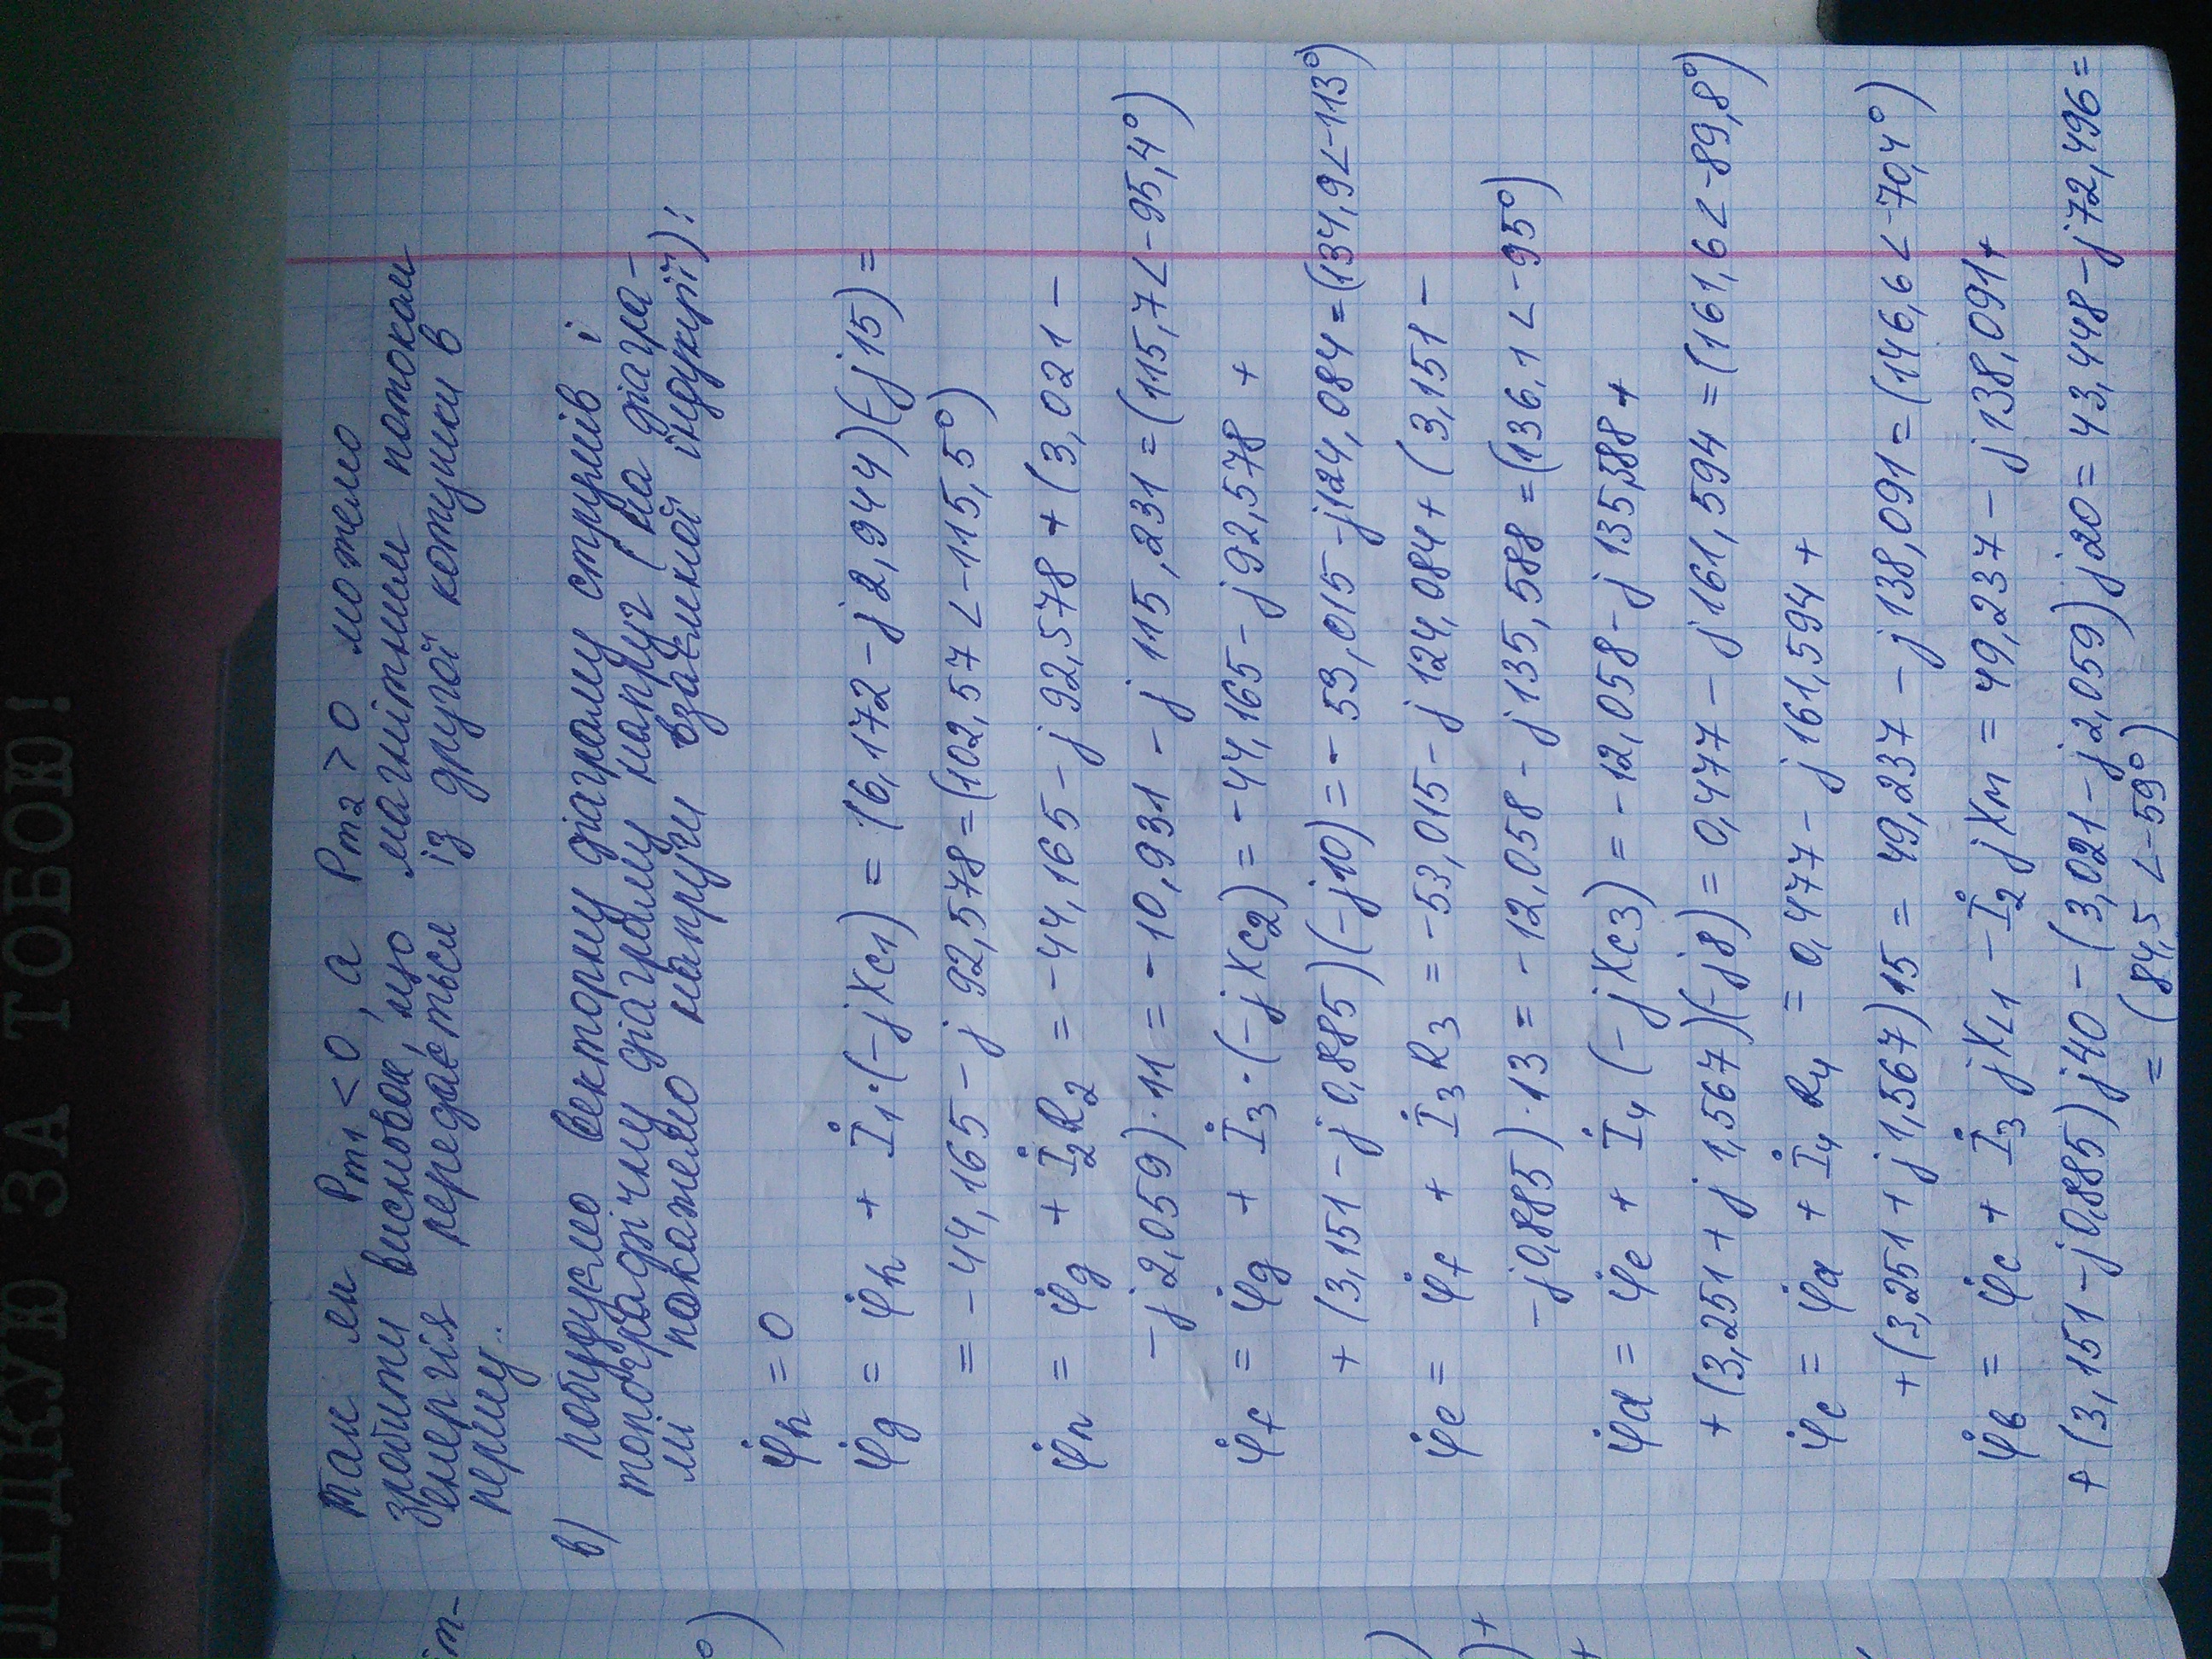 ЛІДКУЮ ЗА ТОБОЮ!
Так як Pm1 < 0, а Pm2 > 0 можемо
зробити висновок, що магнітним потоком
енергія передається із другої котушки в
першу.
в) побудуємо векторну діаграму струмів і
топографічну діаграму напруг (на діагра-
мі покажемо напруги взаємної індукції):
φ̇h = 0
φ̇g = φ̇h + İ1·(-jXc1) = (6,172-j2,944)(-j15) =
= -44,165 - j92,578 = (102,57∠-115,5°)
φ̇n = φ̇g + İ2R2 = -44,165-j92,578 + (3,021 -
-j2,059)·11 = -10,931 - j115,231 = (115,7∠-95,4°)
φ̇f = φ̇g + İ3·(-jXc2) = -44,165-j92,578 +
+ (3,151-j0,885)(-j10) = -53,015-j124,084 = (134,9∠-113°)
φ̇e = φ̇f + İ3R3 = -53,015-j124,084 + (3,151 -
-j0,885)·13 = -12,058 - j135,588 = (136,1∠-95°)
φ̇d = φ̇e + İ4(-jXc3) = -12,058-j135,588 +
+ (3,251+j1,567)(-j8) = 0,477 - j161,594 = (161,6∠-89,8°)
φ̇c = φ̇d + İ4R4 = 0,477 - j161,594 +
+ (3,251+j1,567)15 = 49,237 - j138,091 = (146,6∠-70,4°)
φ̇b = φ̇c + İ3jXL1 - İ2jXm = 49,237 - j138,091 +
+ (3,151-j0,885)j40 - (3,021-j2,059)j20 = 43,448-j72,496 =
= (84,5∠-59°)
іт-
°)
)
)+
+